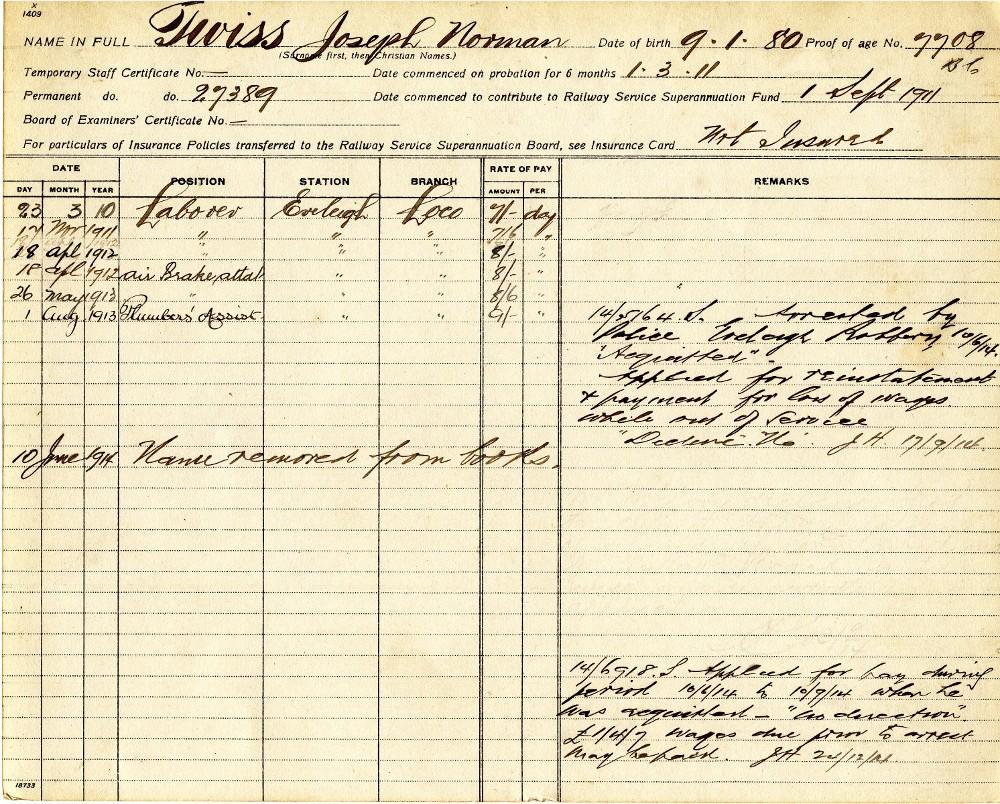 X
1409
NAME IN FULL Twiss Joseph Norman Date of birth 9.1.80 Proof of age No. 7708
(Surname first, then Christian Names.)
Temporary Staff Certificate No. — Date commenced on probation for 6 months 1.3.11
Permanent do. do. 27389 Date commenced to contribute to Railway Service Superannuation Fund 1 Sept 1911
Board of Examiners' Certificate No. —
For particulars of Insurance Policies transferred to the Railway Service Superannuation Board, see Insurance Card Not Insured
DATE POSITION STATION BRANCH RATE OF PAY REMARKS
DAY MONTH YEAR AMOUNT PER
23 3 10 Labourer Eveleigh Loco 7/- day
17 Nov 1911 " " " 7/6 "
18 Apl 1912 " " " 8/- "
18 Apl 1912 Air Brake, attdt " " 8/- "
26 May 1913 " " " 8/6 "
1 Aug 1913 Plumbers' Assist " " 9/- "
14/5164 S. Arrested by
Police Eveleigh Robbery 10/6/14.
"Acquitted".
Applied for reinstatement
& payment for loss of wages
while out of service
"Decline" J.H. 17/9/14.
10 June 1914 Name removed from books.
14/6918.S. Applied for pay during
period 10/6/14 to 10/9/14 when he
was acquitted - "No direction".
£1/4/7 wages due prior to arrest
may be paid. JH 24/12/14.
18733